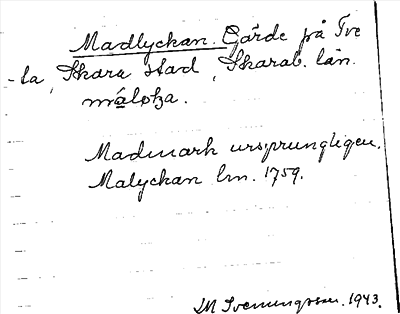 Madlyckan. Gärde på Tve
-ta, Skara stad, Skarab. län.
Madmark ursprungligen.
Malyckan lm. 1759.
M Svenungsson. 1943.